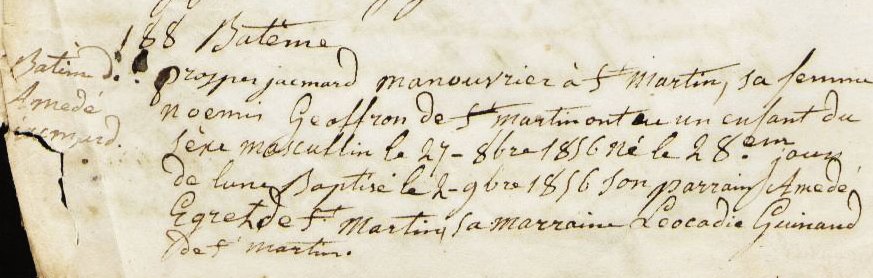 188 Batême
Batême d'
Amedé
jacmard.
prosper jacmard manouvrier à St martin, sa femme
noemis Geoffron de St martin ont eu un enfant du
séxe mascullin le 27 - 8bre 1856 Né le 28.em jour
de lune Baptisé le 2 - 9bre 1856 son parrain Amedé
Egret de St martin, sa marraine Léocadie Guinand
de St martin.